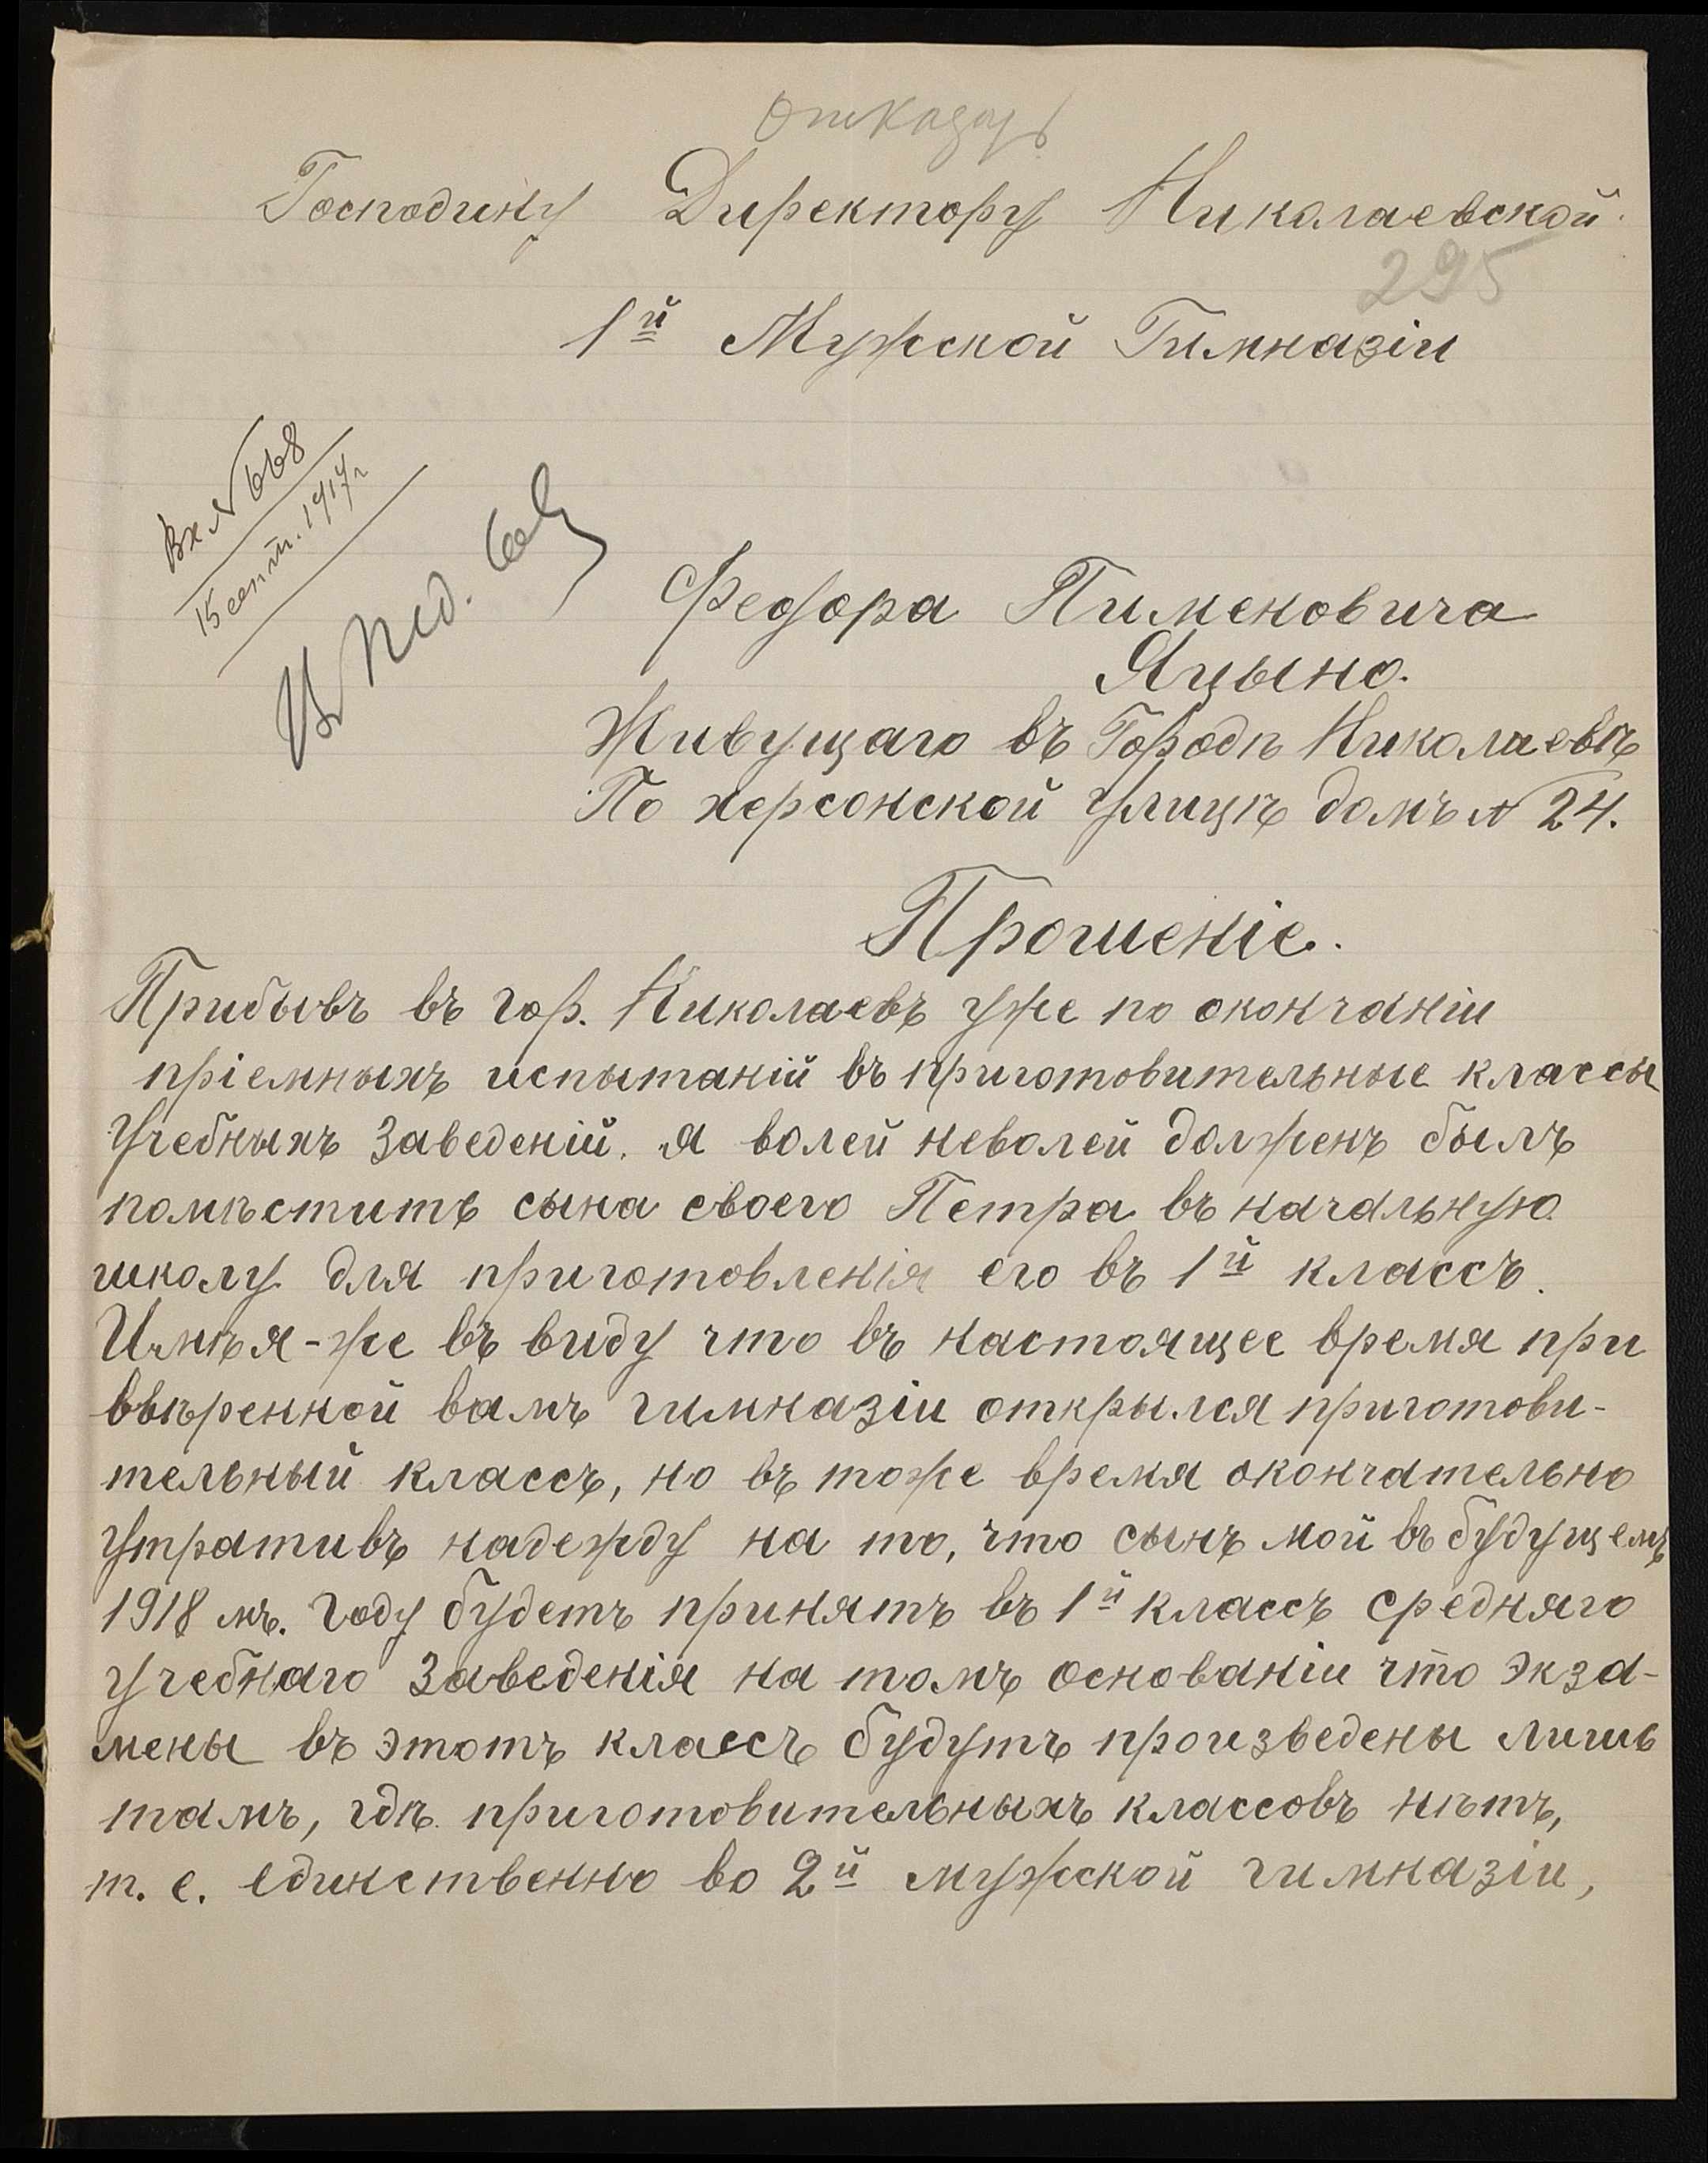 отказать
Господину Директору Николаевской
295
1й Мужской Гимназіи
Вх № 668
15 сент. 1917 г
В Пед. Сов
Феодора Пименовича
Яцыно.
Живущаго въ Городѣ Николаевѣ
По херсонской улицѣ домъ № 24.
Прошеніе.
Прибывъ въ гор. Николаевъ уже по окончаніи
пріемныхъ испытаній въ приготовительные классы
Учебныхъ Заведеній. я волей неволей долженъ былъ
помѣстить сына своего Петра въ начальную
школу для приготовленія его въ 1й классъ.
Имѣя-же въ виду что въ настоящее время при
ввѣренной вамъ гимназіи открылся приготови-
тельный классъ, но въ тоже время окончательно
утративъ надежду на то, что сынъ мой въ будущемъ
1918 мъ. году будетъ принятъ въ 1й классъ средняго
учебнаго Заведенія на томъ основаніи что экза-
мены въ этотъ классъ будутъ произведены лишь
тамъ, гдѣ приготовительныхъ классовъ нѣтъ,
т. е. единственно во 2й мужской гимназіи,